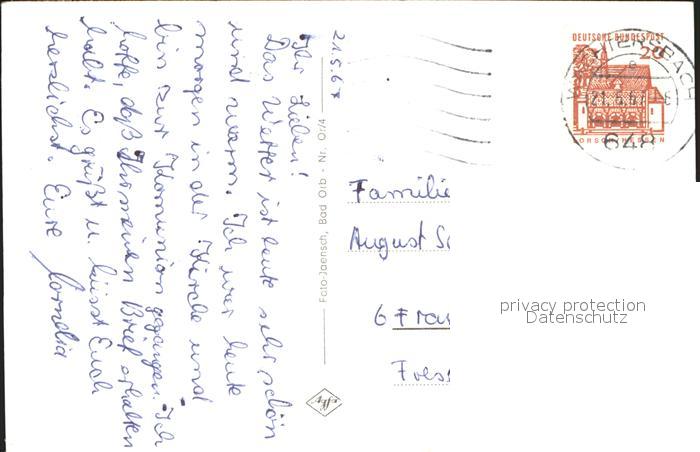 21.5.67
Ihr Lieben!
Das Wetter ist heute sehr schön
und warm. Ich war heute
morgen in der Kirche und
bin zur Kommunion gegangen. Ich
hoffe, daß Ihr meinen Brief erhalten
habt. Es grüßt u. küsst Euch
herzlichst Eure Cornelia
Foto-Jaensch, Bad Orb - Nr. Or/4
DEUTSCHE BUNDESPOST
20
21.5.67
648
Familie
August
6
privacy protection
Datenschutz